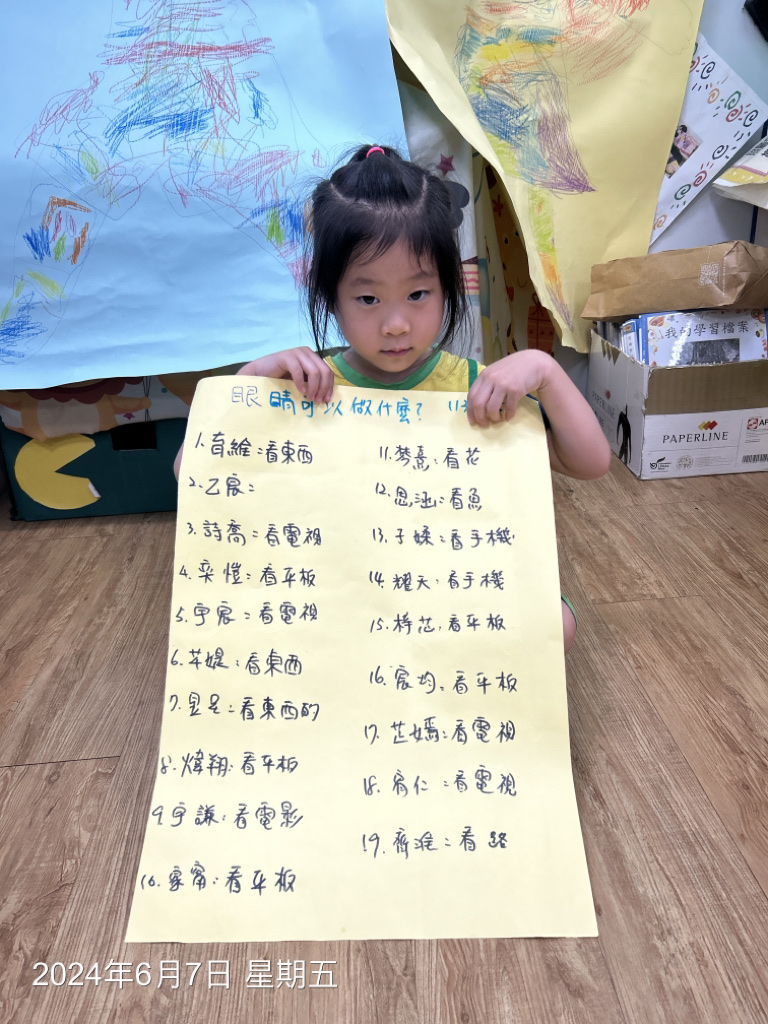 眼睛可以做什麼? 113
1.育維:看東西
2.乙宸:
3.詩喬:看電視
4.奕愷:看平板
5.宇宸:看電視
6.苹媞:看東西
7.昱呈:看東西的
8.煒翔:看平板
9.宇謙:看電影
10.家甯:看平板
11.梦熹:看花
12.思涵:看魚
13.子媖:看手機
14.耀天:看手機
15.梓芯:看平板
16.宸均:看平板
17.芷嫣:看電視
18.宥仁:看電視
19.齊淮:看路
我的學習檔案
PAPERLINE
2024年6月7日 星期五